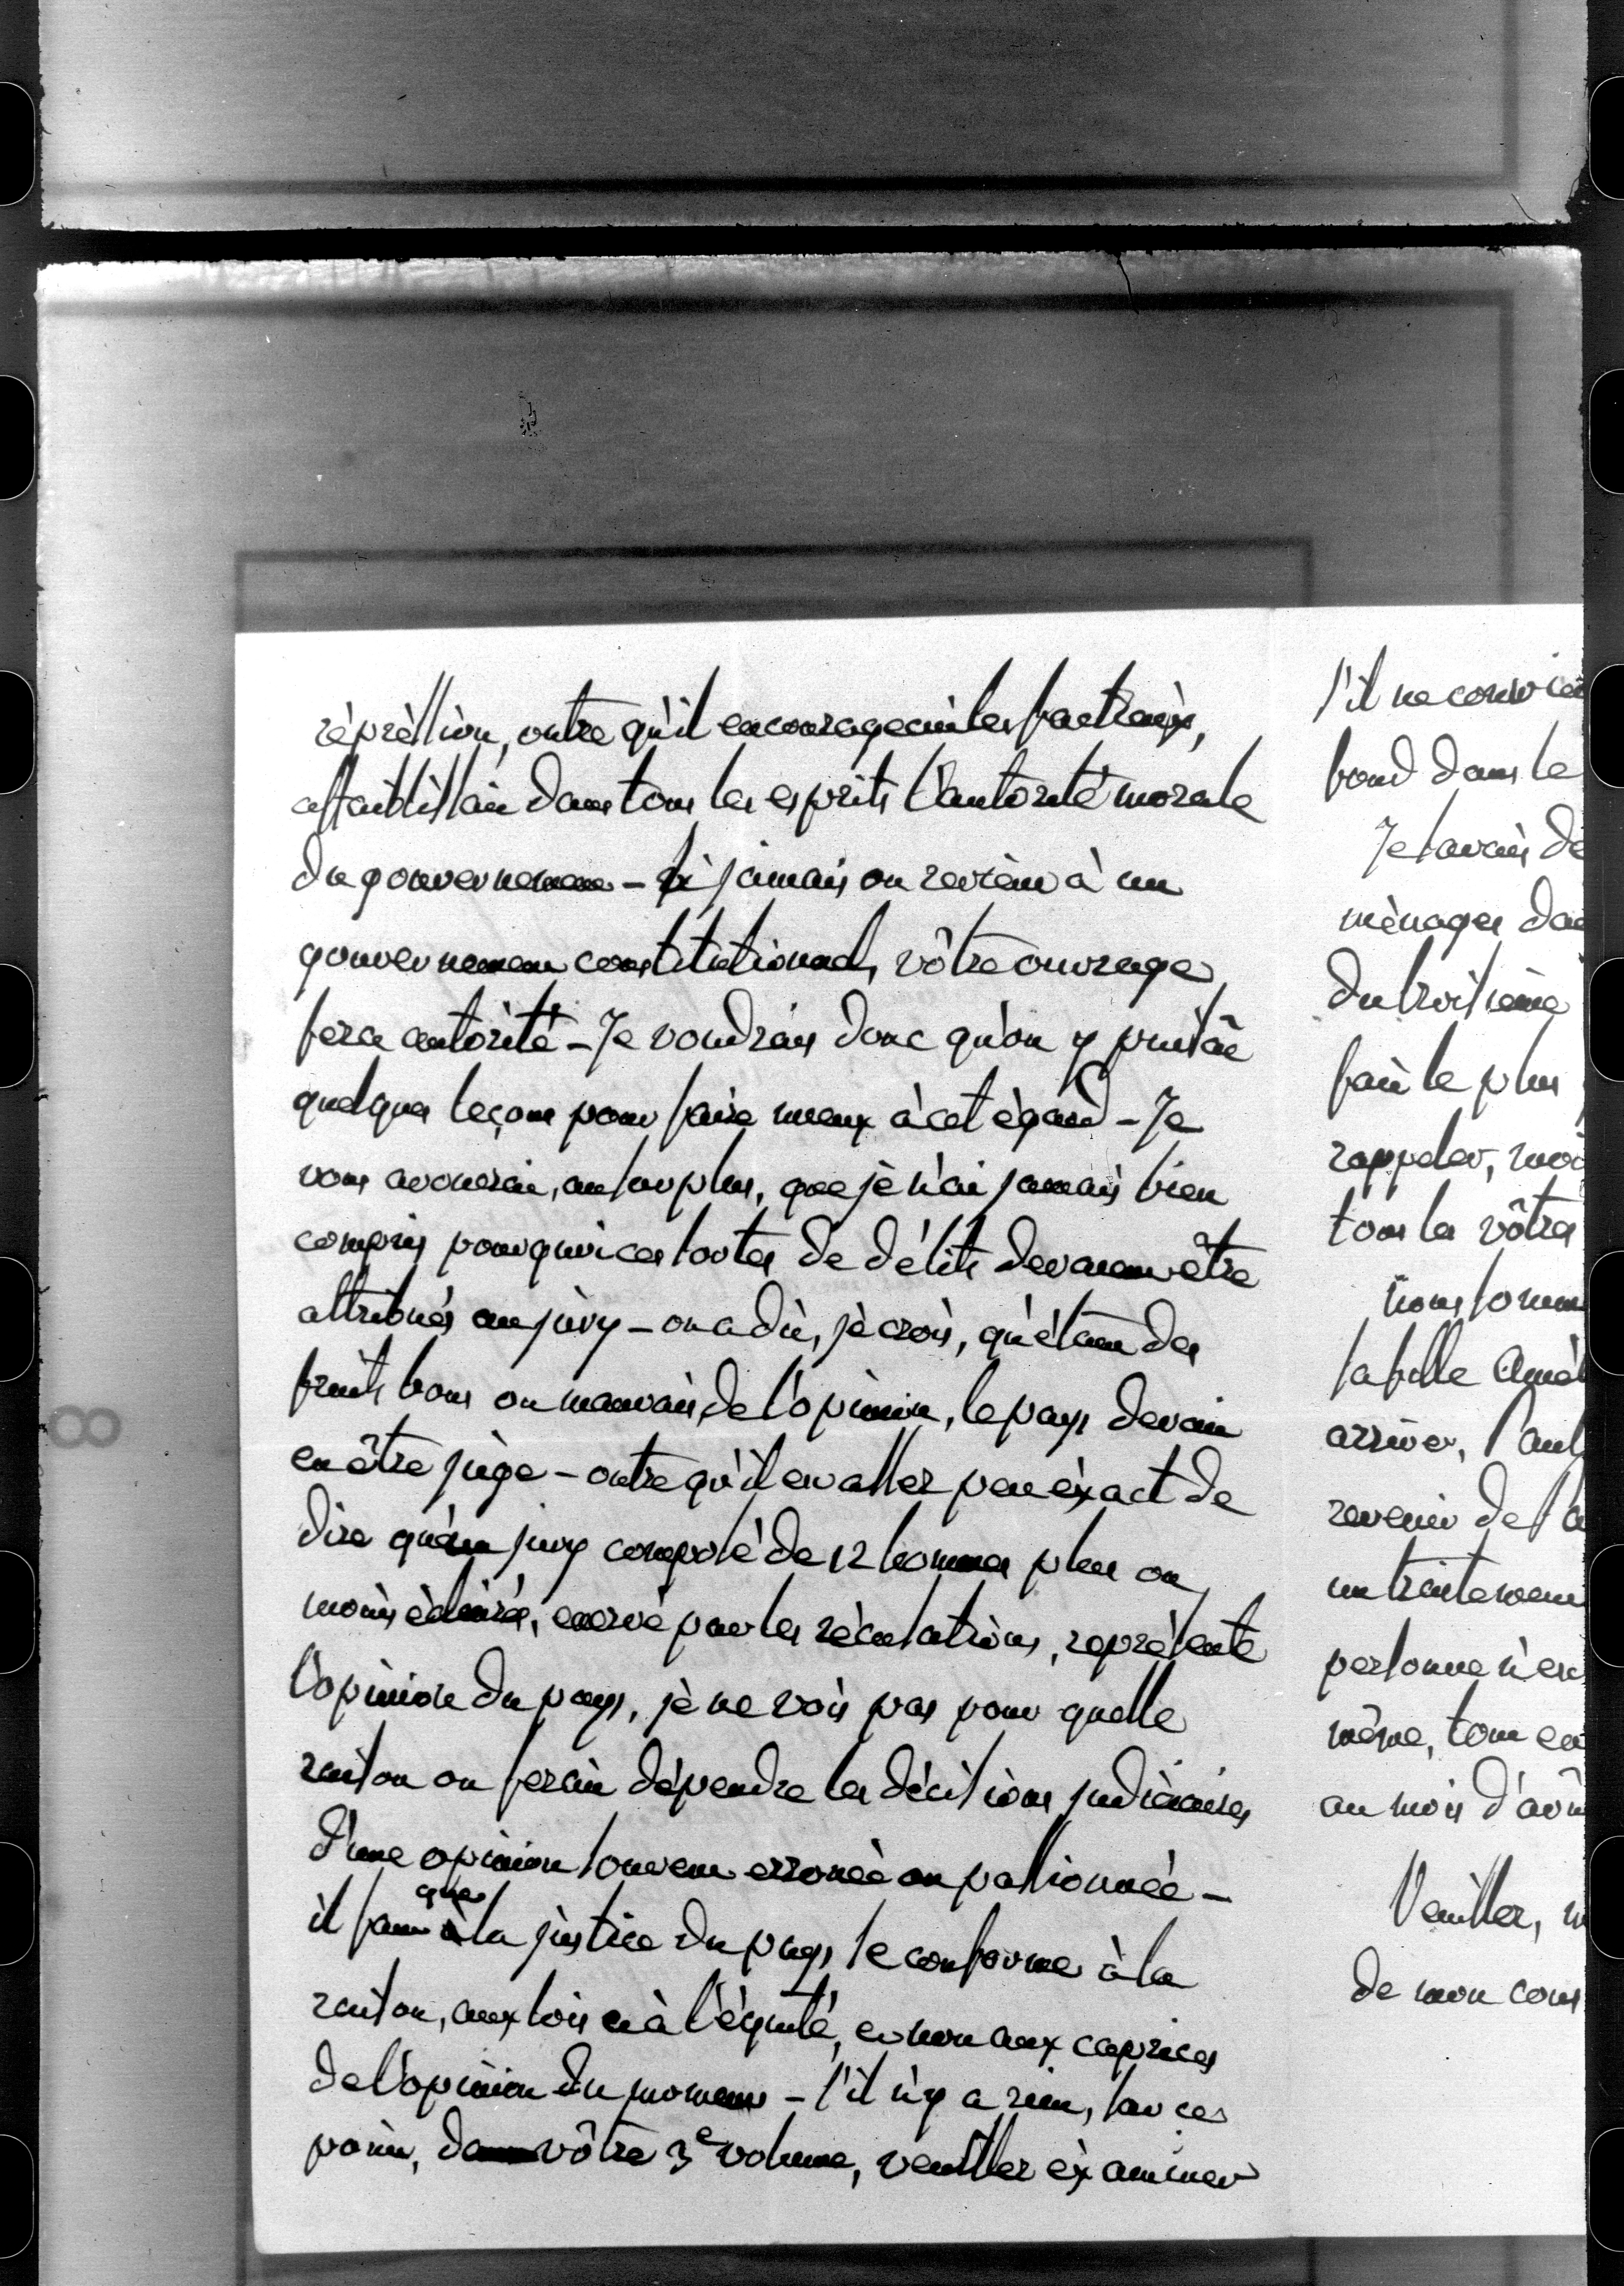 répression, outre qu'il encourageait les factieux,
affaiblissait dans tous les esprits l'autorité morale
du gouvernement - si jamais on revient à un
gouvernement constitutionnel, vôtre ouvrage
fera autorité - Je voudrais donc qu'on y puisât
quelques leçons pour faire mieux à cet égard - Je
vous avouerai, au surplus, que je n'ai jamais bien
compris pourquoi ces sortes de délits devaient être
attribués au jury - on a dit, je crois, qu'étant des
fruits bons ou mauvais de l'opinion, le pays devait
en être juge - outre qu'il est assez peu exact de
dire qu'un jury composé de 12 hommes plus ou
moins éclairés, énervé par les récusations, représente
l'opinion du pays, je ne vois pas pour quelle
raison on ferait dépendre les décisions judiciaires
d'une opinion souvent erronée ou passionnée -
il faut que la justice du pays se conforme à la
raison, aux lois et à l'équité, et non aux caprices
de l'opinion du moment - s'il n'y a rien, sur ces
points, dans vôtre 3e volume, veuillez examiner
s'il ne convien
fond dans le
Je savais de
ménager dan
du troisième
fait le plus
rappeler,
tous les vôtres
nous somm
sa fille Amél
arriver,
revenir de
un traitement
personne n'en
même, tout en
au mois d'aôu
Veuillez,
de mon cous